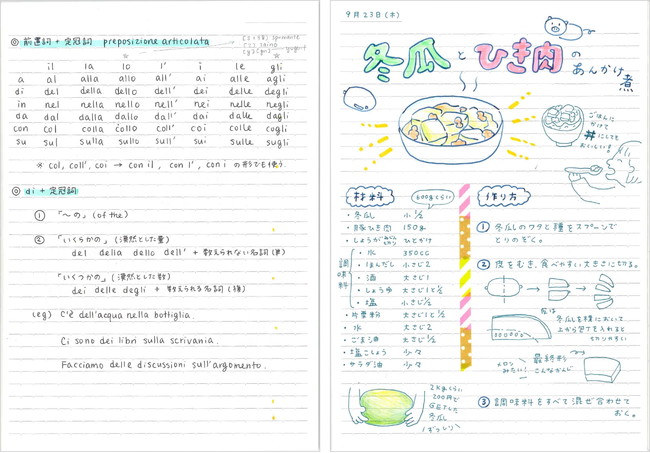 ◎ 前置詞 + 定冠詞 preposizione articolata
il la lo l' i le gli
a al alla allo all' ai alle agli
di del della dello dell' dei delle degli
in nel nella nello nell' nei nelle negli
da dal dalla dallo dall' dai dalle dagli
con col colla collo coll' coi colle cogli
su sul sulla sullo sull' sui sulle sugli
※ col, coll', coi → con il, con l', con i の形でも使う
◎ di + 定冠詞
① 「〜の」(of the)
② 「いくらかの」(漠然とした量)
del della dello dell' + 数えられない名詞(単)
「いくつかの」(漠然とした数)
dei delle degli + 数えられる名詞(複)
(eg) C'è dell'acqua nella bottiglia.
Ci sono dei libri sulla scrivania.
Facciamo delle discussioni sull'argomento.
9月23日(木)
冬瓜とひき肉の
あんかけ煮
ごはんに
かけて
丼にしても
おいしい。
材料
600gくらい
・冬瓜 小½
・豚ひき肉 150g
・しょうが みじん切り ひとかけ
調味料
・水 350cc
・ほんだし 小さじ2
・酒 大さじ1
・しょうゆ 大さじ1と½
・塩 小さじ½
・片栗粉 大さじ1と½
・水 大さじ2
・ごま油 大さじ½
・塩こしょう 少々
・サラダ油 少々
2kgくらい
200円で
GETした
冬瓜
ずっしり
作り方
① 冬瓜のワタと種をスプーンで
とりのぞく。
② 皮をむき、食べやすい大きさに切る。
皮は
冬瓜を横において
上から包丁を入れると
切りやすい
メロン
みたい!
最終形
こんなかんじ
③ 調味料をすべて混ぜ合わせて
おく。